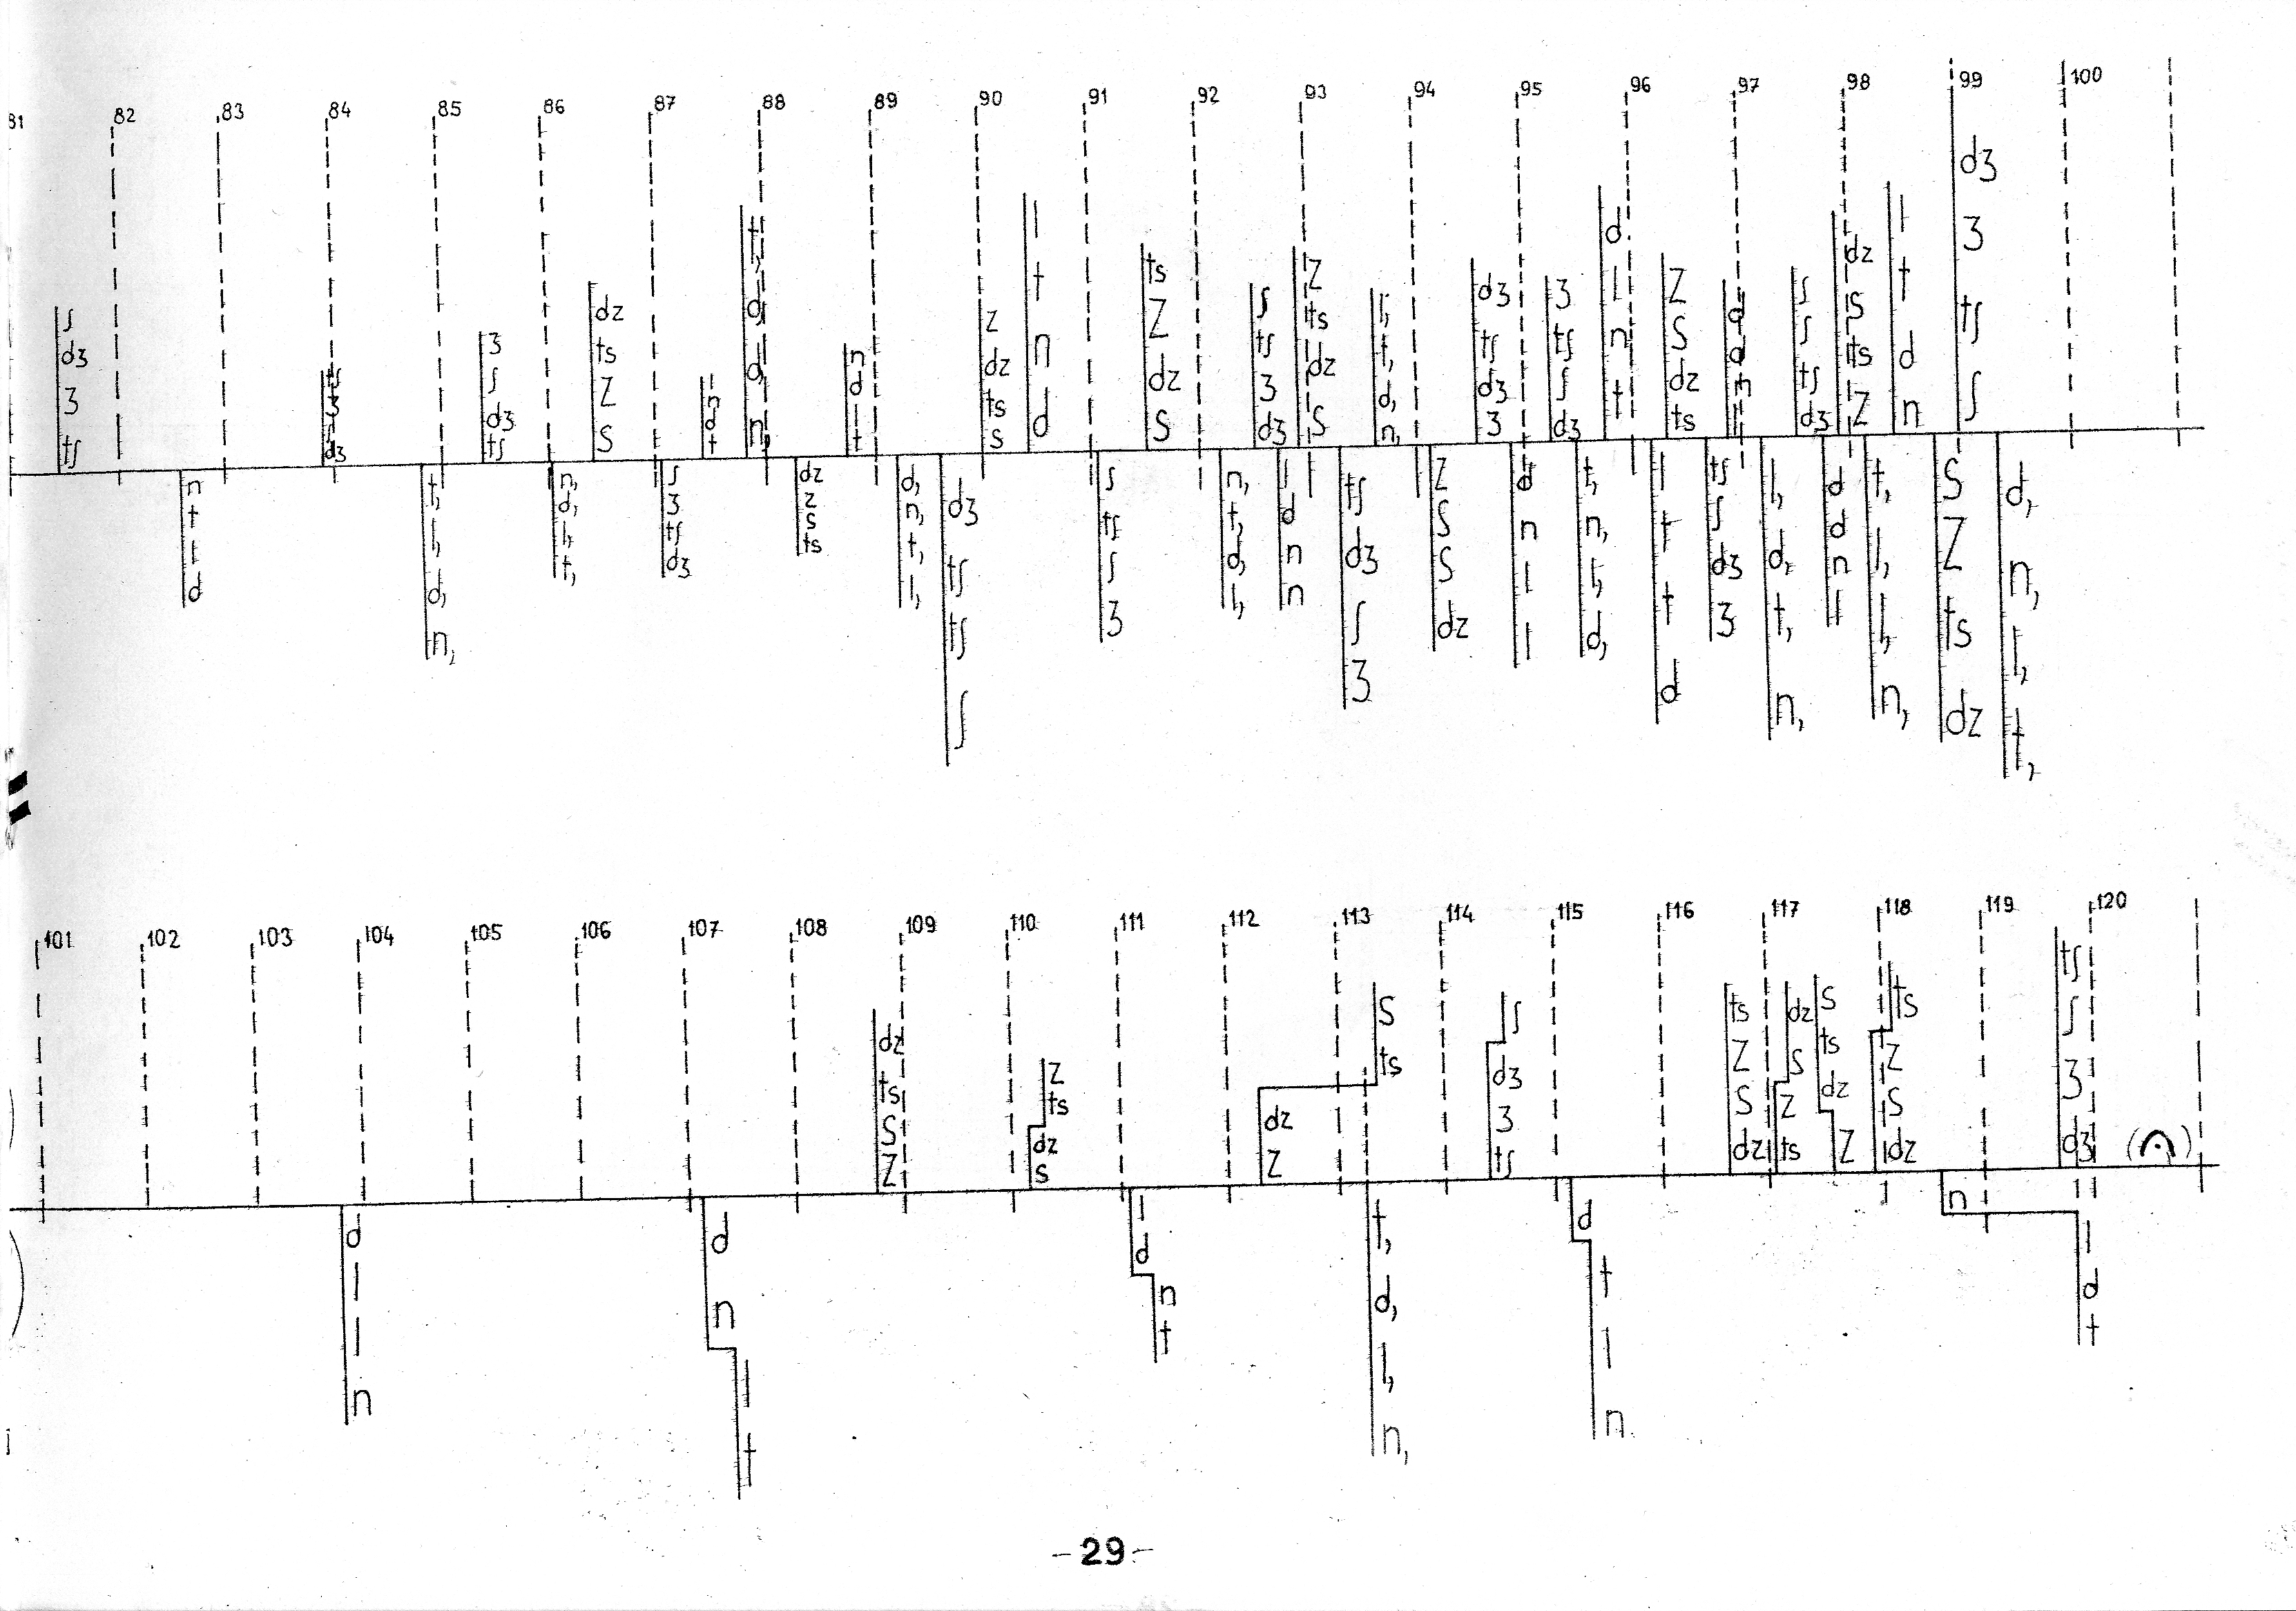 81 82 83 84 85 86 87 88 89 90 91 92 93 94 95 96 97 98 99 100
ʃ dʒ ʒ tʃ
n t l d
t, l, d, n,
ʒ ʃ dʒ tʃ
n, d, l, t,
dz ts z s
ʃ ʒ tʃ dʒ
l n d t
dz z s ts
n d l t
d, n, t, l,
dʒ tʃ tʃ ʃ
z dz ts s
l t n d
ʃ tʃ ʃ ʒ
ts z dz s
n, t, d, l,
ʃ tʃ ʒ dʒ
l d n n
z ts dz s
tʃ dʒ ʃ ʒ
l, t, d, n,
z s s dz
dʒ tʃ dʒ ʒ
d n l l
ʒ tʃ ʃ dʒ
t, n, l, d,
d l n t
l t t d
z s dz ts
tʃ ʃ dʒ ʒ
d d n l
l, d, t, n,
ʃ ʃ tʃ dʒ
d d n l
dz s ts z
t, l, l, n,
l t d n
s z ts dz
dʒ ʒ tʃ ʃ
d, n, l, t,
101 102 103 104 105 106 107 108 109 110 111 112 113 114 115 116 117 118 119 120
d l l n
d n l t
dz ts s z
z ts dz s
l d n t
s ts dz z
t, d, l, n,
ʃ dʒ ʒ tʃ
d t l n
ts z s dz
dz s z ts
s ts dz z
ts z s dz
n l d t
tʃ ʃ ʒ dʒ
( )
-29-